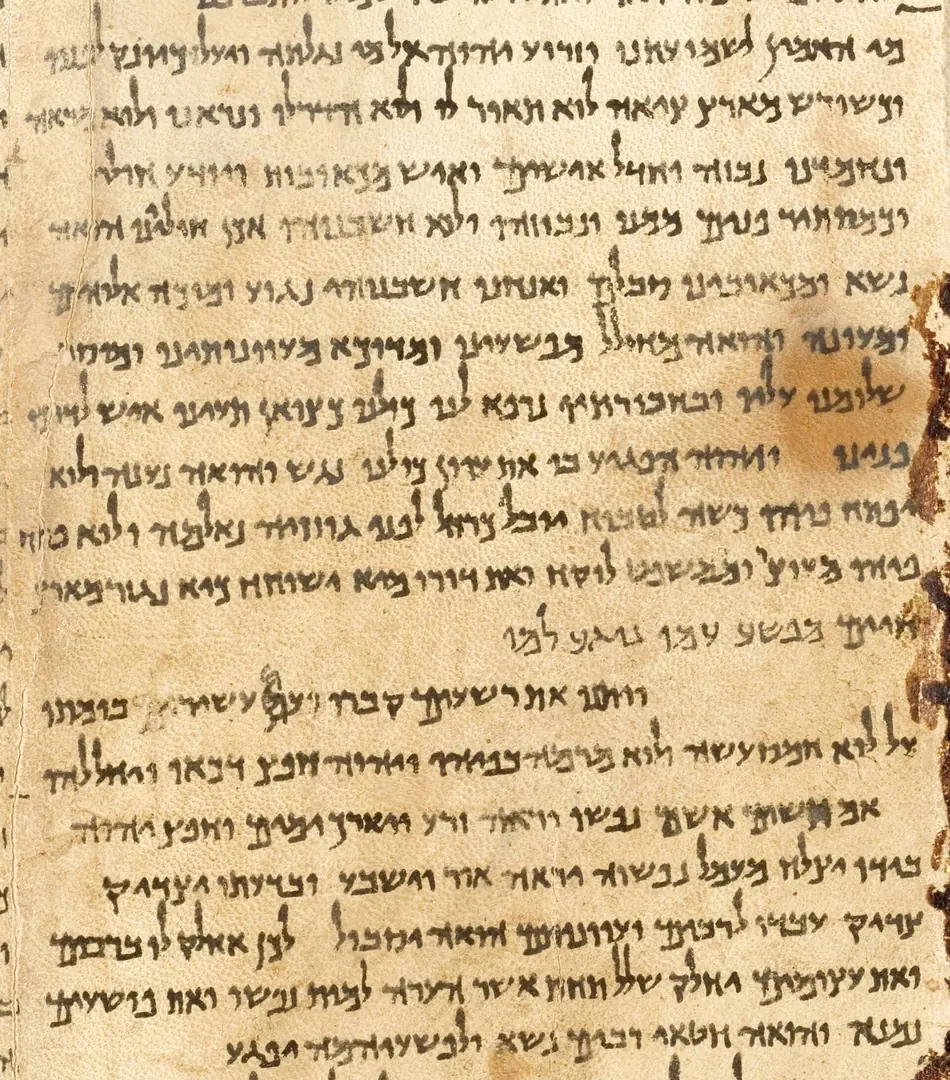 מי האמין לשמועתנו וזרוע יהוה אל מי נגלתה ויעל כיונק לפניו
וכשורש מארץ ציאה לוא תואר לו ולא הדר לו ונראנו ולוא מראה
ונחמדנו נבזה וחדל אישים ואיש מכאובות ויודע חולי
וכמסתיר פנים ממנו ונבוזהו ולא חשבנוהו אכן חוליינו הואה
נשא ומכאובינו סבלם ואנחנו חשבנוהו נגוע ומוכה אלוהים
ומעונה והואה מחולל מפשעינו ומדוכא מעוונותינו ומוסר
שלומנו עליו ובחבורתיו נרפא לנו כולנו כצואן תעינו איש לדרכו
פנינו ויהוה הפגיע בו את עוון כולנו נגש והואה נענה ולוא
יפתח פיהו כשה לטבוח יובל כרחל לפני גוזזיה נאלמה ולוא פתח
פיהו מעוצר וממשפט לוקח ואת דורו מיא ישוחח כיא נגזר מארץ
חיים מפשע עמו נוגע למו
ויתנו את רשעים קברו ועם עשיר בומתו
על לוא חמס עשה ולוא מרמה בפיהו ויהוה חפץ דכאו ויחללהו
אם תשים אשם נפשו יראה זרע ויארך ימים וחפץ יהוה
בידו יצלח מעמל נפשוה יראה אור וישבע ובדעתו יצדיק
צדיק עבדו לרבים ועוונותם הואה יסבול לכן אחלק לו ברבים
ואת עצומים יחלק שלל תחת אשר הערה למות נפשו ואת פושעים
נמנא והואה חטאי רבים נשא ולפשעיהמה יפגע